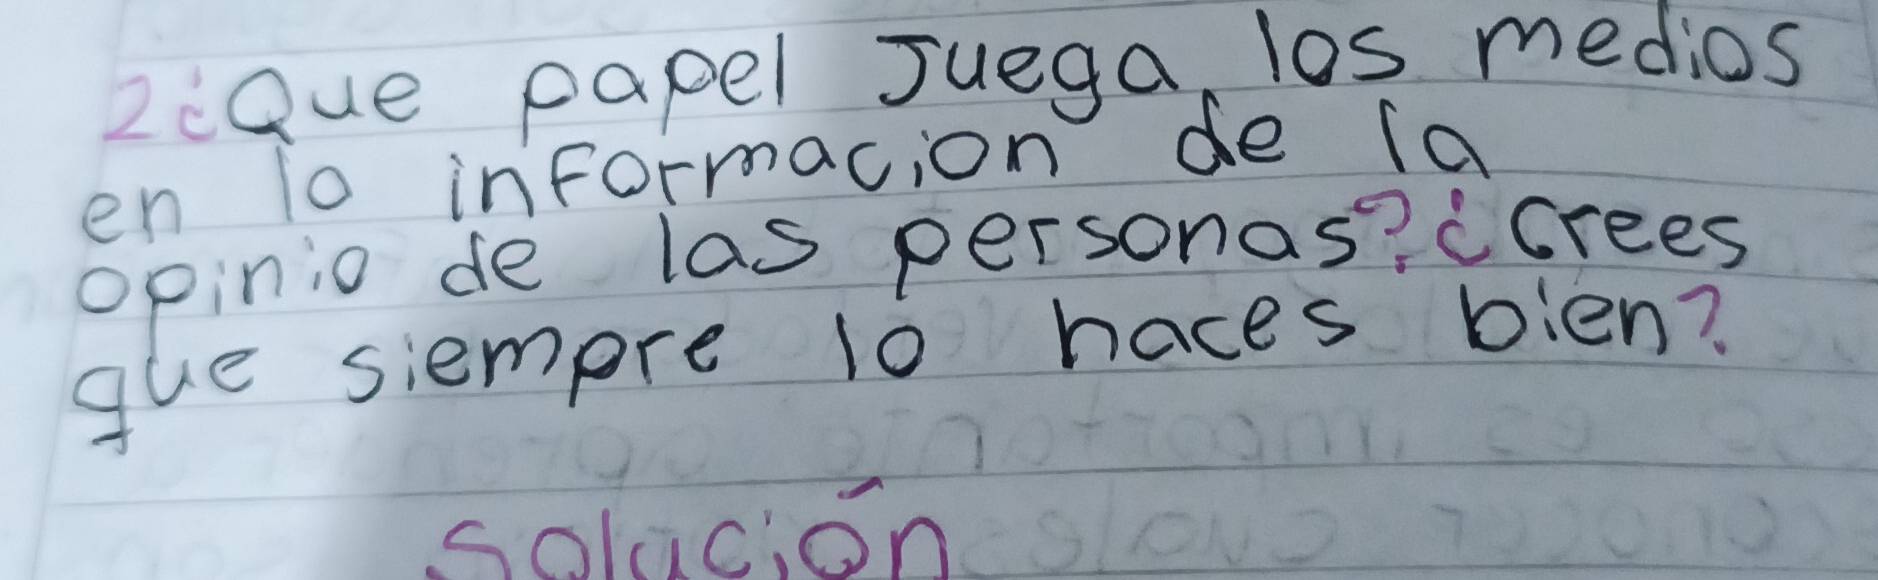 2¿Que papel Juega los medios
en la informacion de la
opinio de las personas?¿Crees
que siempre lo haces bien?
solución